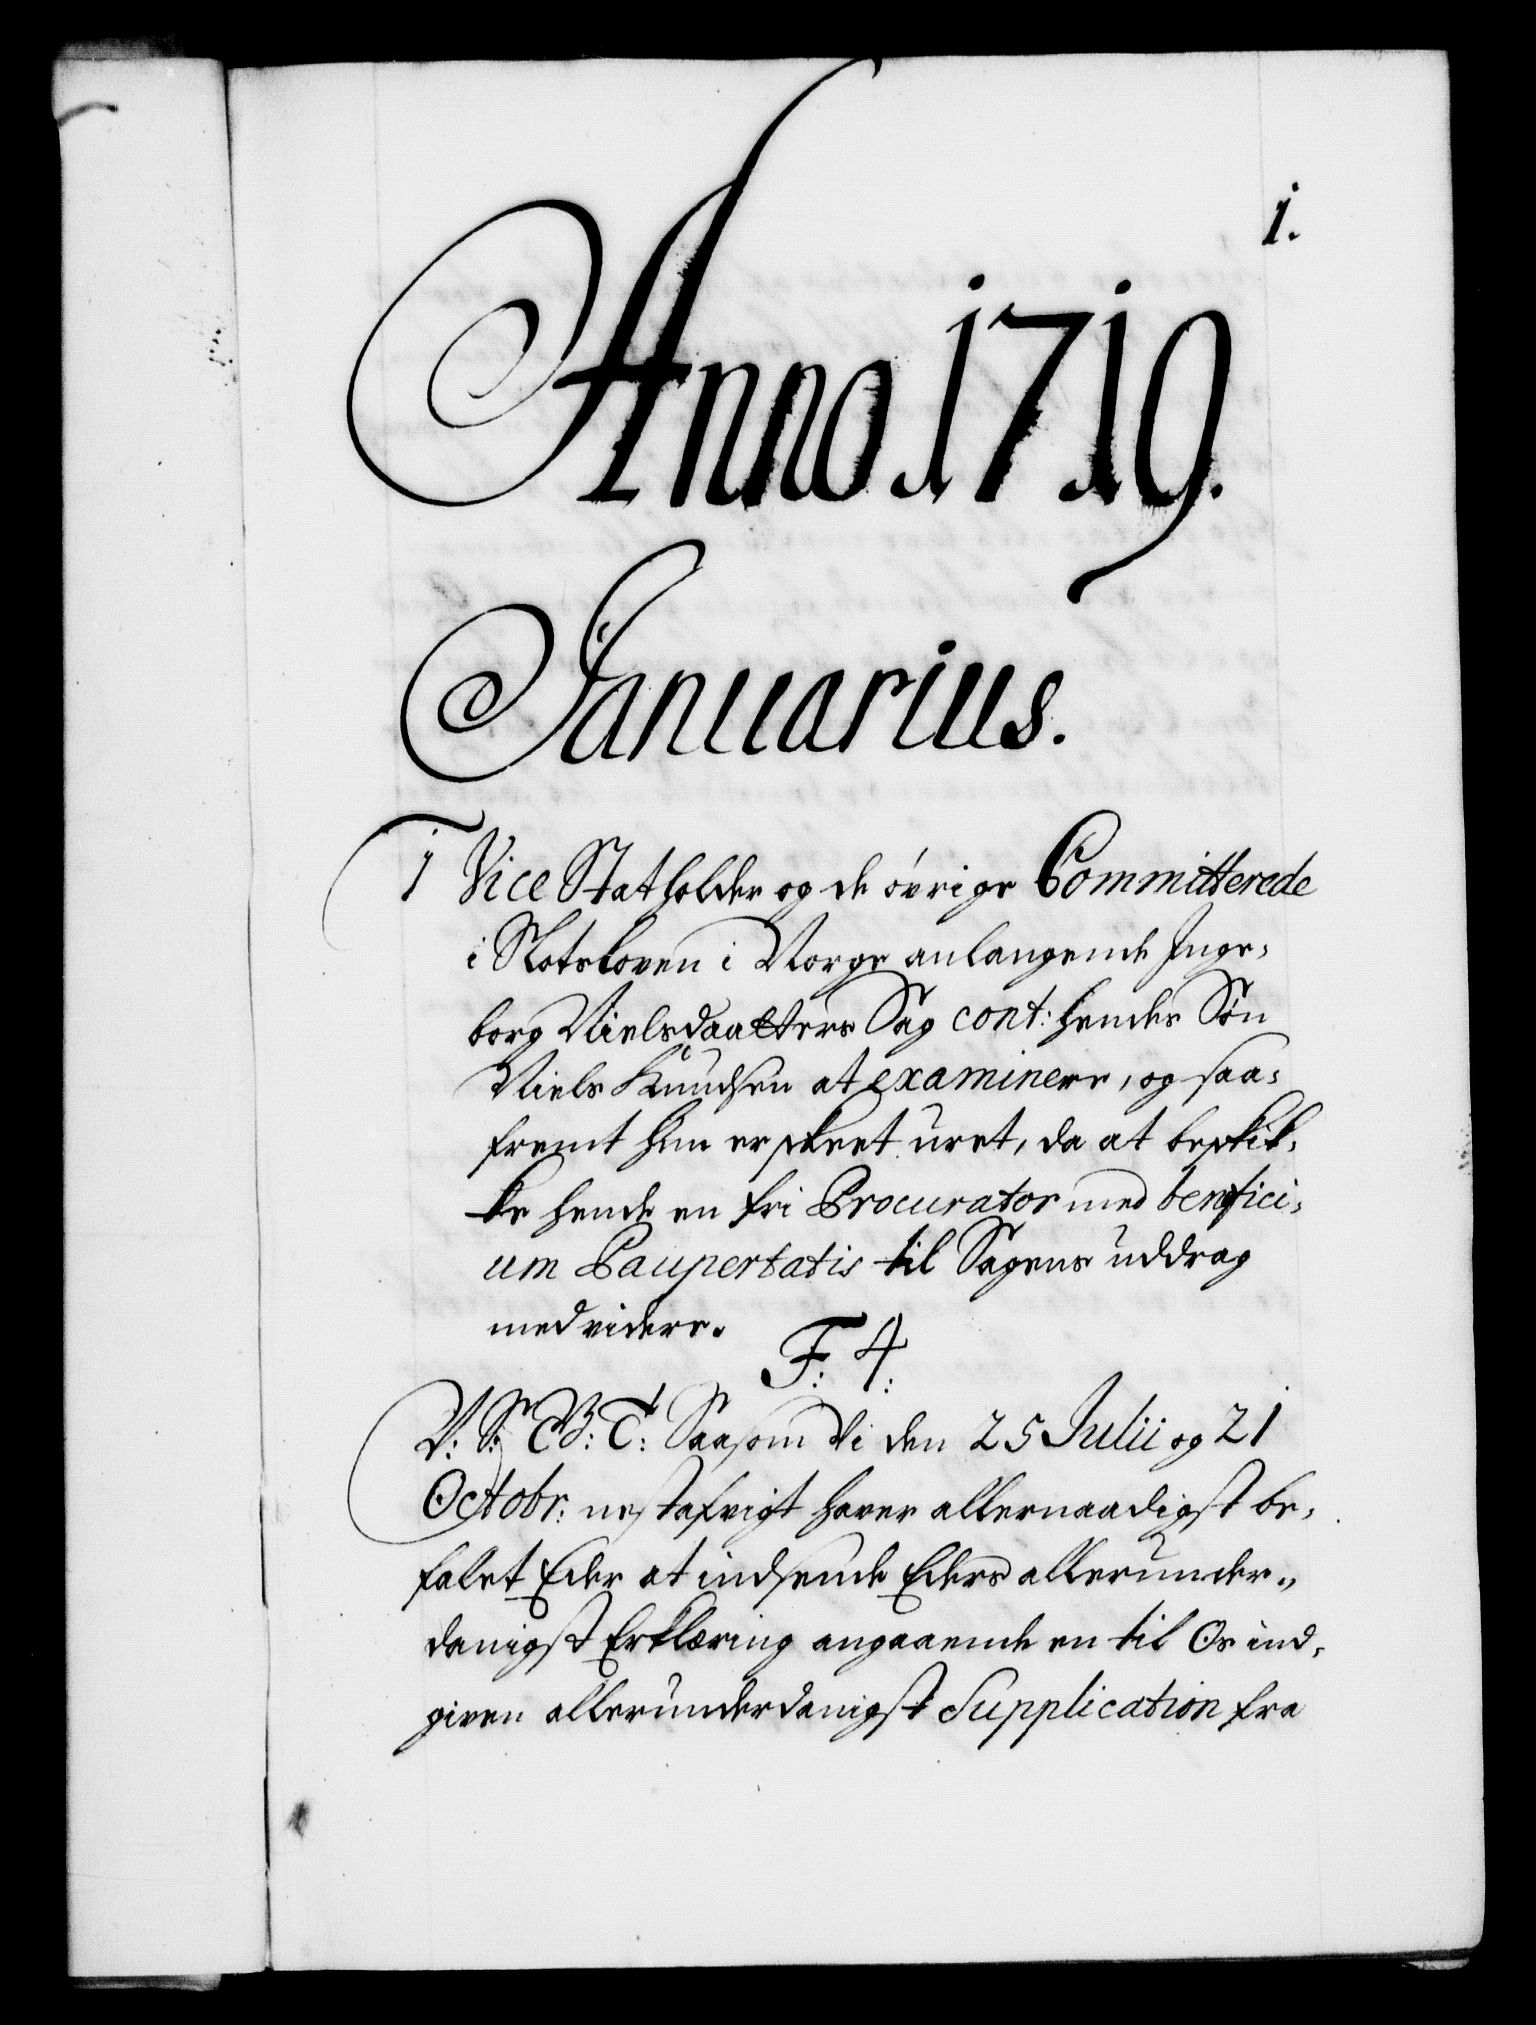 1.
Anno. 1719.
Januarius.
1 Vice Statholder og de øvrige Committerede
i Slotsloven i Norge anlangende Inge=
borg Nielsdaatters Sag cont: hendes Søn
Niels Knudsen at examinere, og saa=
fremt hun er skeet uret, da at beskik=
ke hende en fri Procurator med benefici=
um Paupertatis til Sagens uddrag
med videre.
F: 4:
V: S: G: B: T: Saasom Vi den 25 Julii og 21
Octobr: nestafvigt haver allernaadigst be=
falet Eder at indsende Eders allerunder=
danigst Erklæring angaaende en til Os ind=
given allerunderdanigst Supplication fra